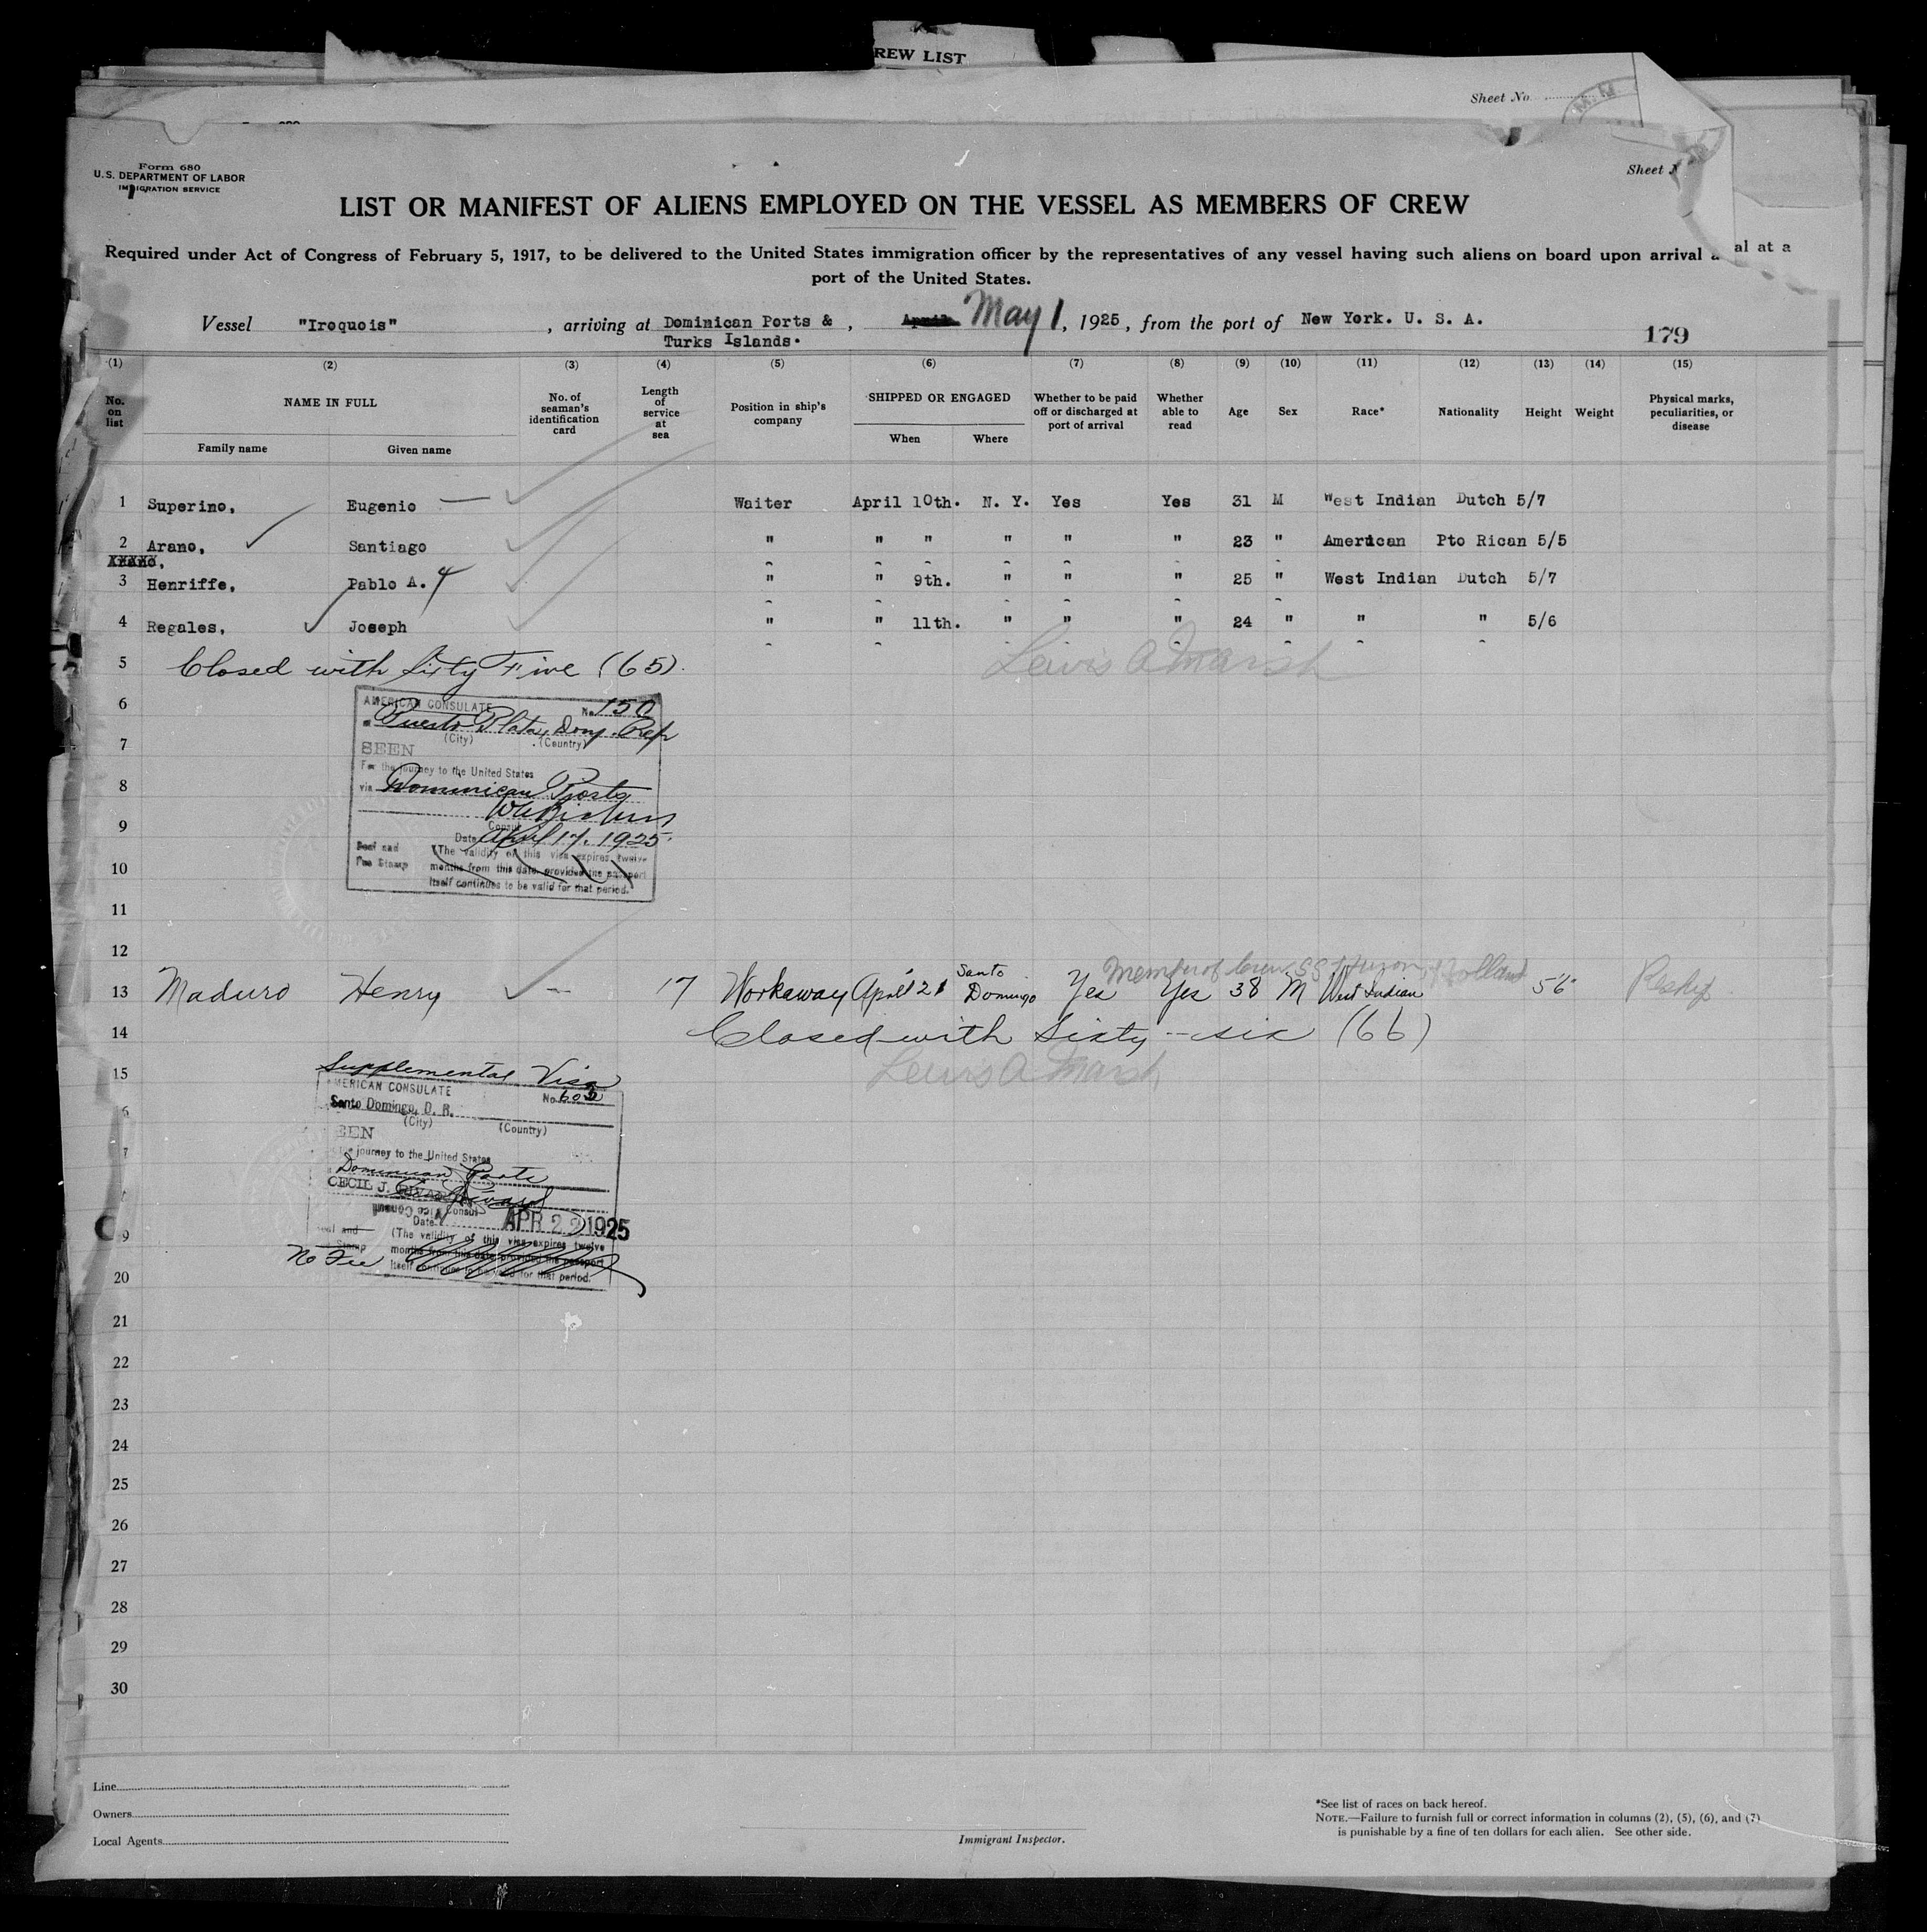 REW LIST
Sheet No
Form 680
U.S. DEPARTMENT OF LABOR
IMMIGRATION SERVICE
Sheet N
LIST OR MANIFEST OF ALIENS EMPLOYED ON THE VESSEL AS MEMBERS OF CREW
Required under Act of Congress of February 5, 1917, to be delivered to the United States immigration officer by the representatives of any vessel having such aliens on board upon arrival a al at a
port of the United States.
Vessel "Iroquois" , arriving at Dominican Ports & , April May 1, 1925, from the port of New York. U. S. A.
Turks Islands.
179
(1) (2) (3) (4) (5) (6) (7) (8) (9) (10) (11) (12) (13) (14) (15)
No. on list NAME IN FULL Family name Given name No. of seaman's identification card Length of service at sea Position in ship's company SHIPPED OR ENGAGED When Where Whether to be paid off or discharged at port of arrival Whether able to read Age Sex Race* Nationality Height Weight Physical marks, peculiarities, or disease
1 Superino, Eugenio Waiter April 10th. N. Y. Yes Yes 31 M West Indian Dutch 5/7
2 Arano, Santiago " " " " " " 23 " American Pto Rican 5/5
3 Henriffe, Pablo A. " " 9th. " " " 25 " West Indian Dutch 5/7
4 Regales, Joseph " " 11th. " " " 24 " " " 5/6
5 Closed with Sixty Five (65). Lewis A Marsh
6
7
8
9
10
11
12
AMERICAN CONSULATE No. 150
at Puerto Plata, Dom. Rep
(City) (Country)
SEEN
For the journey to the United States
via Dominican Ports
Consul
Date April 17, 1925.
Seal and Fee Stamp
(The validity of this visa expires twelve
months from this date, provided the passport
itself continues to be valid for that period.
Member of Crew SS Huron
13 Maduro Henry 17 Workaway April 21 Santo Domingo Yes Yes 38 M West Indian Holland 5'6"
14 Closed with Sixty-six (66)
15 Lewis A Marsh
Supplemental Visa
AMERICAN CONSULATE No. 602
Santo Domingo, D. R.
(City) (Country)
EEN
journey to the United States
Dominican Ports
CECIL J.
Vice Consul Consul
Date APR 22 1925
(The validity of this visa expires twelve
months from this date provided the passport
itself continues to be valid for that period.
No Fee
20
21
22
23
24
25
26
27
28
29
30
Line
Owners
Local Agents
Immigrant Inspector.
*See list of races on back hereof.
NOTE.—Failure to furnish full or correct information in columns (2), (5), (6), and (7)
is punishable by a fine of ten dollars for each alien. See other side.